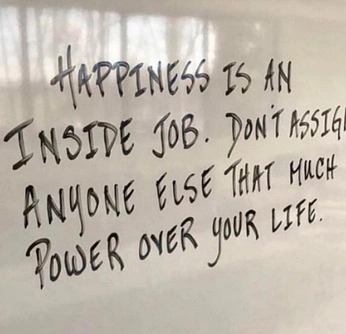 HAPPINESS IS AN
INSIDE JOB. DON'T ASSIG
ANYONE ELSE THAT MUCH
POWER OVER YOUR LIFE.